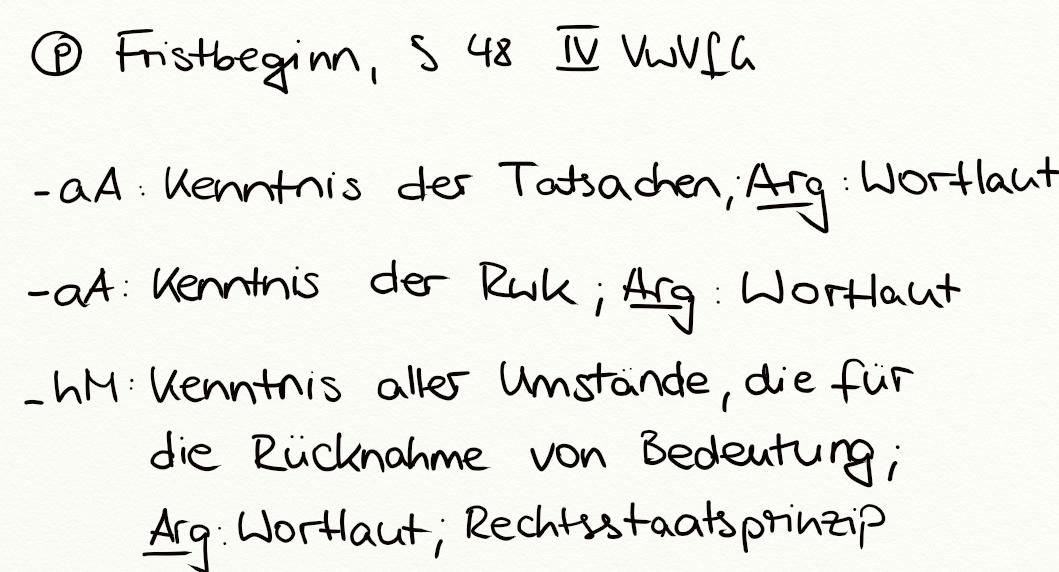 Ⓟ Fristbeginn, § 48 IV VwVfG
- aA: Kenntnis der Tatsachen; Arg: Wortlaut
- aA: Kenntnis der Rwk; Arg: Wortlaut
- hM: Kenntnis aller Umstände, die für
die Rücknahme von Bedeutung;
Arg: Wortlaut; Rechtsstaatsprinzip